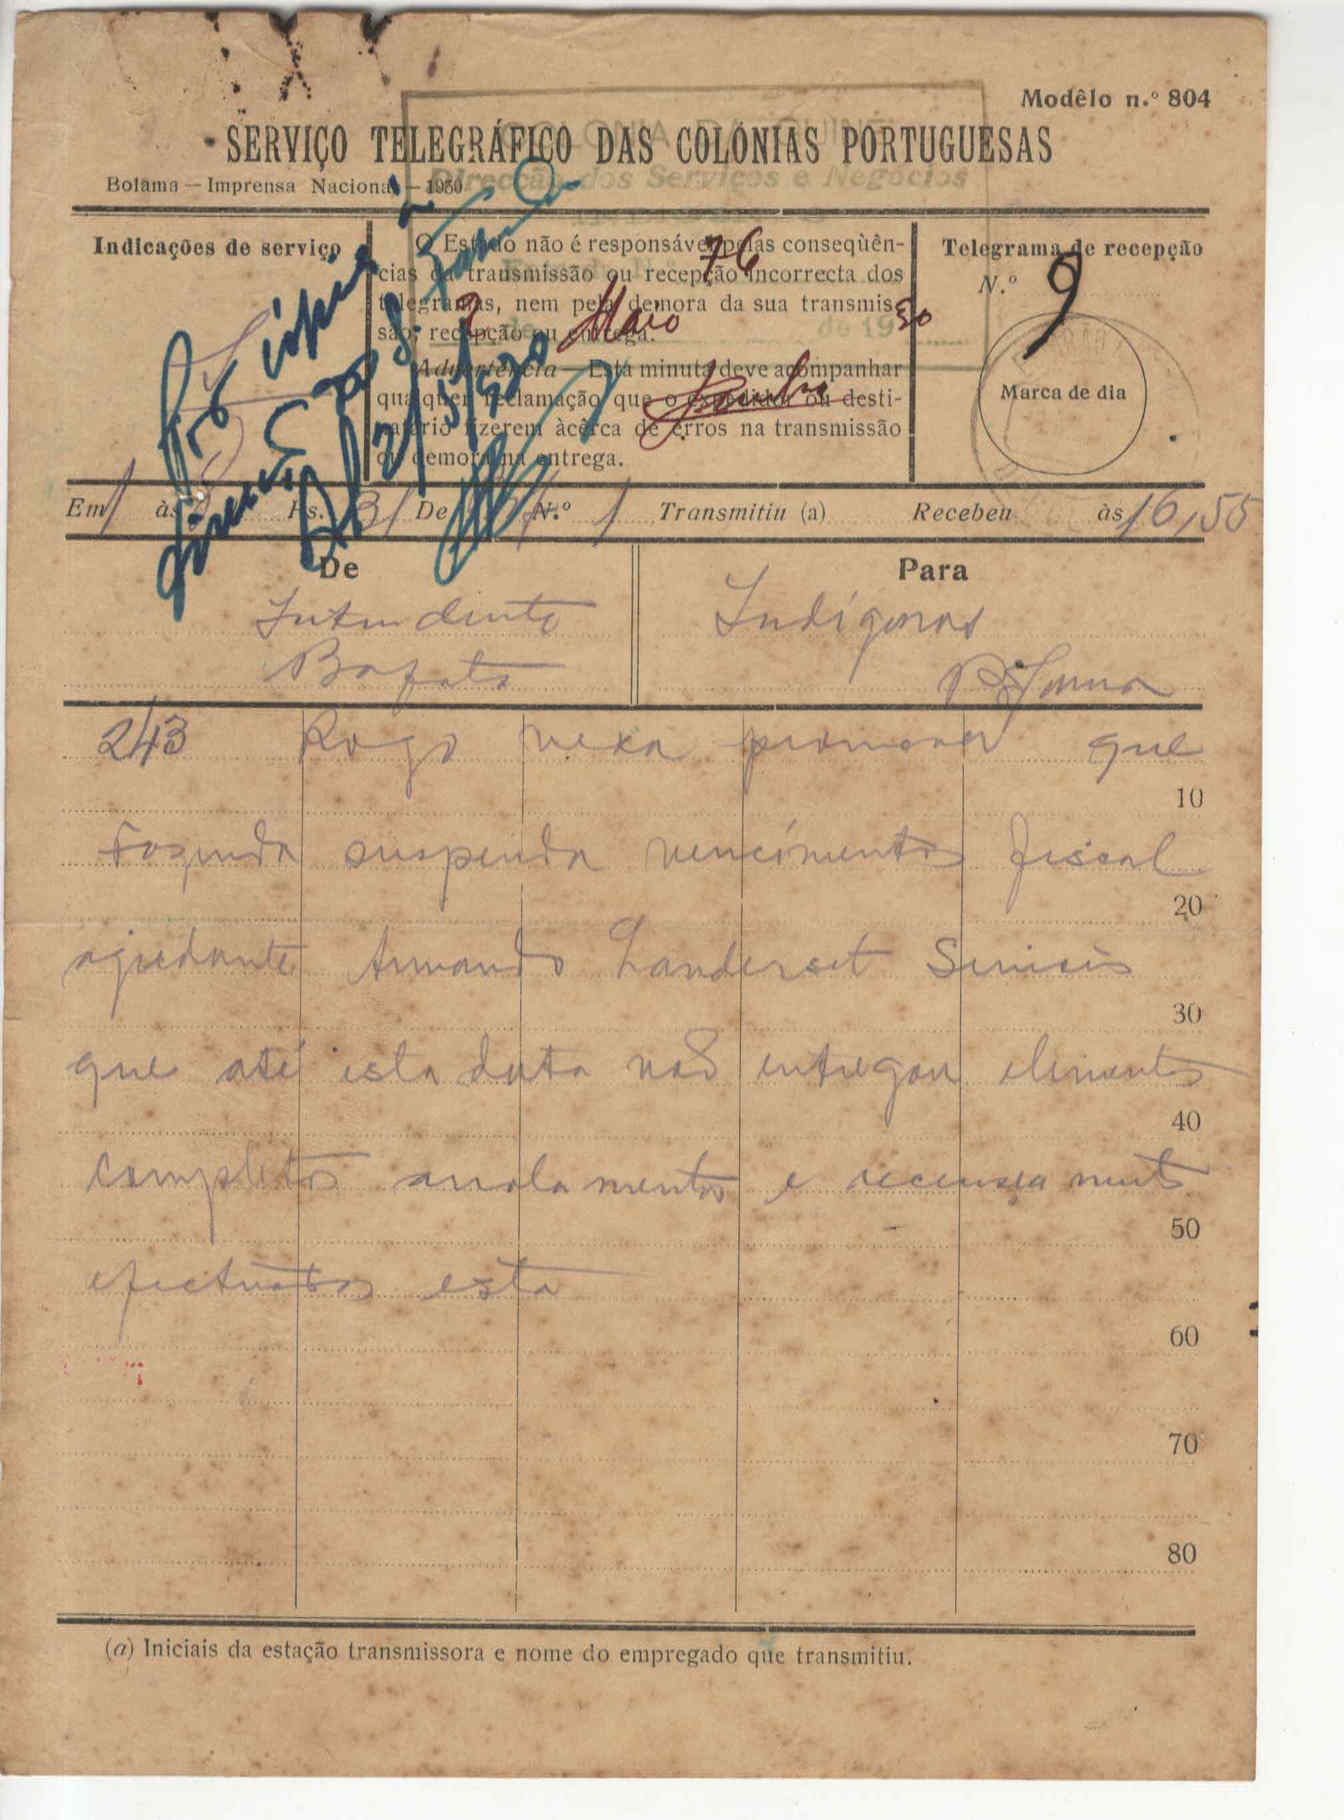 Modêlo n.º 804
SERVIÇO TELEGRÁFICO DAS COLÓNIAS PORTUGUESAS
COLONIA DA GUINÉ
Direcção dos Serviços e Negócios
Bolama — Imprensa Nacional — 1930
Indicações de serviço
O Estado não é responsável pelas conseqùên-
cias da transmissão ou recepção incorrecta dos
telegramas, nem pela demora da sua transmis-
são, recepção ou entrega.
Advertência — Esta minuta deve acompanhar
qualquer reclamação que o expedidor ou desti-
natário fizerem àcêrca de erros na transmissão
ou demora na entrega.
76
2 de Maio de 1930
Telegrama de recepção
N.º 9
Marca de dia
2/5/930
Em 1 às Ps. 31 De N.º 1 Transmitiu (a) Recebeu às 16,55
De
Para
Intendente
Bafata
Indígenas
Bolama
243 Rogo vexa promover que
10
Fazenda suspenda vencimentos fiscal
20
ajudante Armando Landerset Simões
30
que até esta data não entregou elementos
40
completos arrolamentos e recenseamento
50
efectuados esta
60
70
80
(a) Iniciais da estação transmissora e nome do empregado que transmitiu.